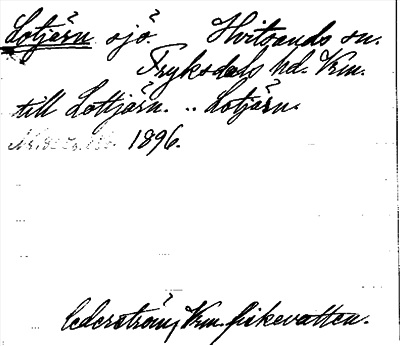 Lotjärn sjö. Hvitsands sn.
Fryksdals hd. Vrm.
till Lottjärn. .. Lotjärn.
1896.
Cederström, Vrm. fiskevatten.